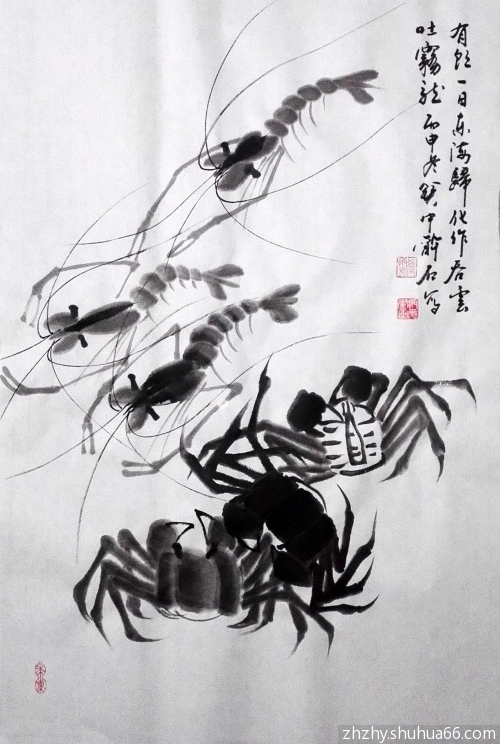 有朝一日东海歸化作吞雲
吐霧龙丙申冬癸中瀚石写
zhzhy.shuhua66.com